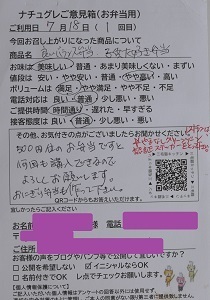 ナチュグレご意見箱(お弁当用)
ご利用日 7月18日(1回目)
今回お召し上がりになった商品について
商品名
お味は 美味しい・普通・あまり美味しくない・まずい
値段は 安い・やや安い・普通・やや高い・高い
ボリュームは 満足・やや満足・やや不足・不足
電話対応は 良い・普通・少し悪い・悪い
ご提供時間 時間通り・遅れた・早すぎる
接客態度は 良い・普通・少し悪い・悪い
その他、お気付きの点がございましたらお聞かせください
500円位のお弁当ですと
何回も購入できるので
よろしくお願いします。
おにぎり弁当も作って下さい。
QRコードからもお答えいただけます。
宜しかったらご記入ください
お名前 様 電話
ご住所
お客様の声をブログやパンフ等で公開しても宜しいですか
□公開を希望しない ☑イニシャルならOK
□名前付きでOK し点でチェックお願いします。
【個人情報保護について】